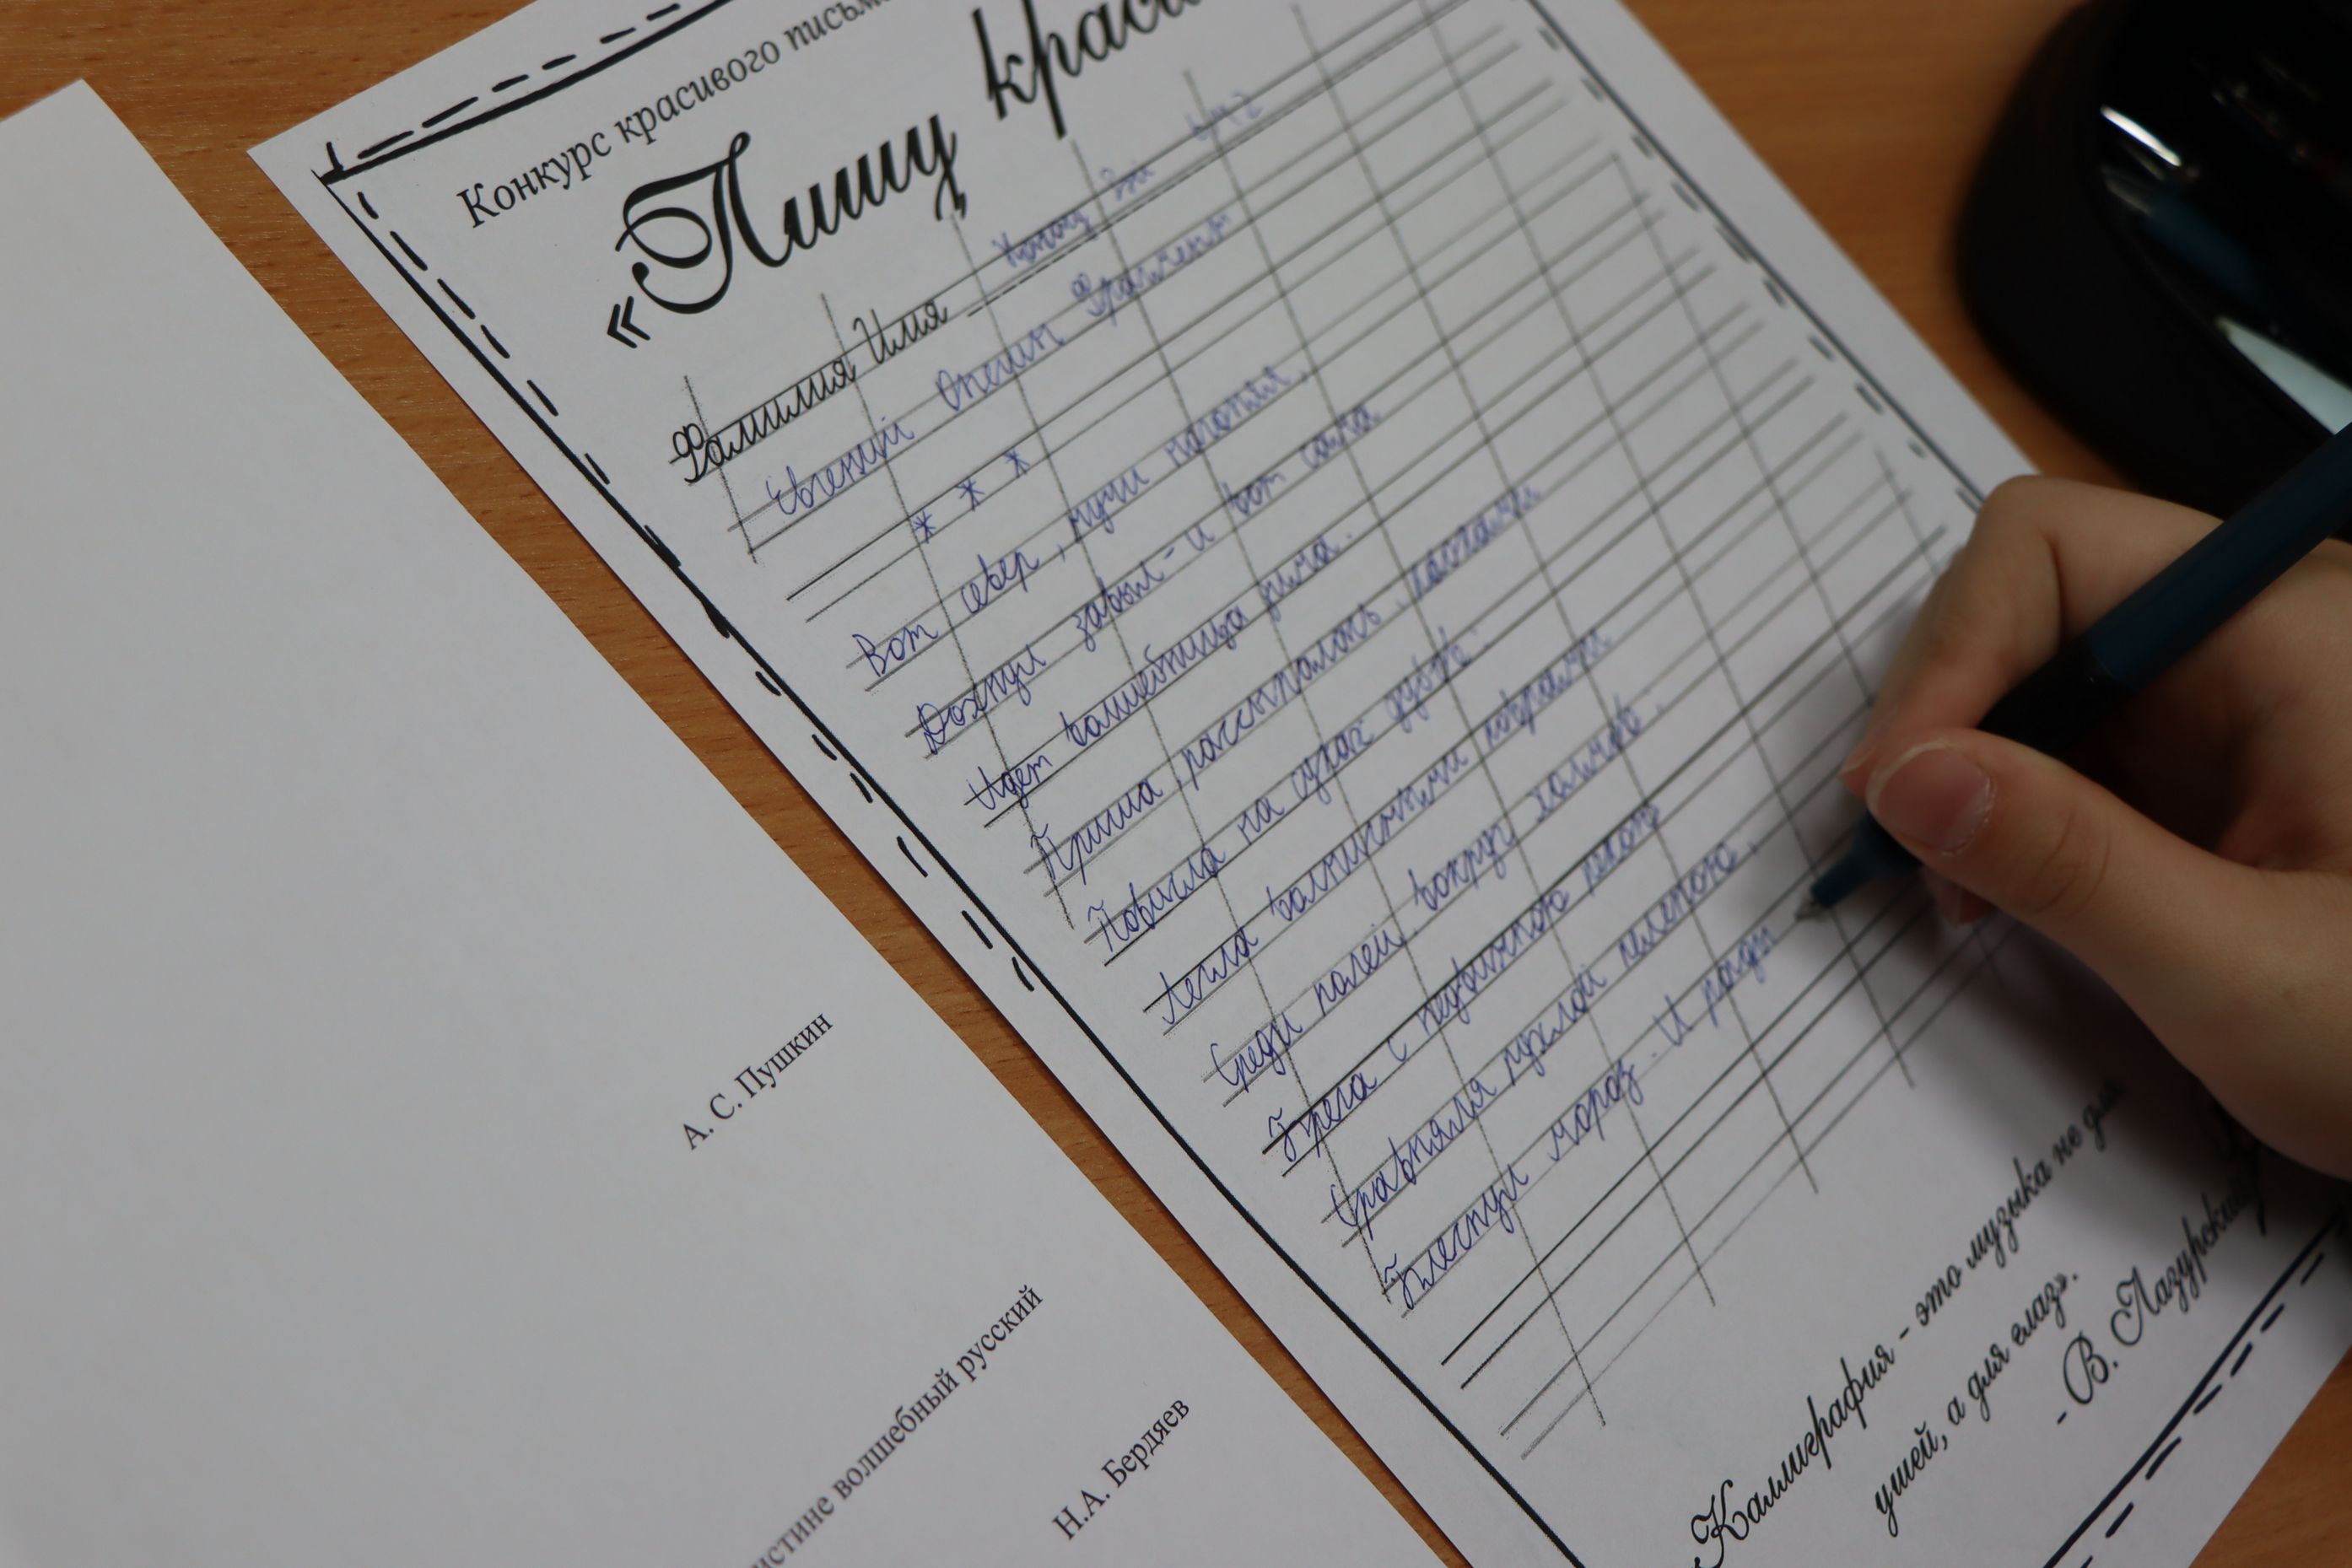 Конкурс красивого письма
«Пишу крас
Фамилия Имя
Евгений Онегин Фрагмент
* * *
Вот север, тучи нагоняя,
Дохнул завыл - и вот сама
Идет волшебница зима.
Пришла, рассыпалась, клоками
Повисла на суках дубов.
Легла волнистыми коврами
Среди полей, вокруг холмов.
Брега с недвижною рекою
Сравняла пухлой пеленою.
Блеснул мороз. И рады
«Каллиграфия - это музыка не для
ушей, а для глаз».
- В. Лазурский
А. С. Пушкин
истине волшебный русский
Н.А. Бердяев